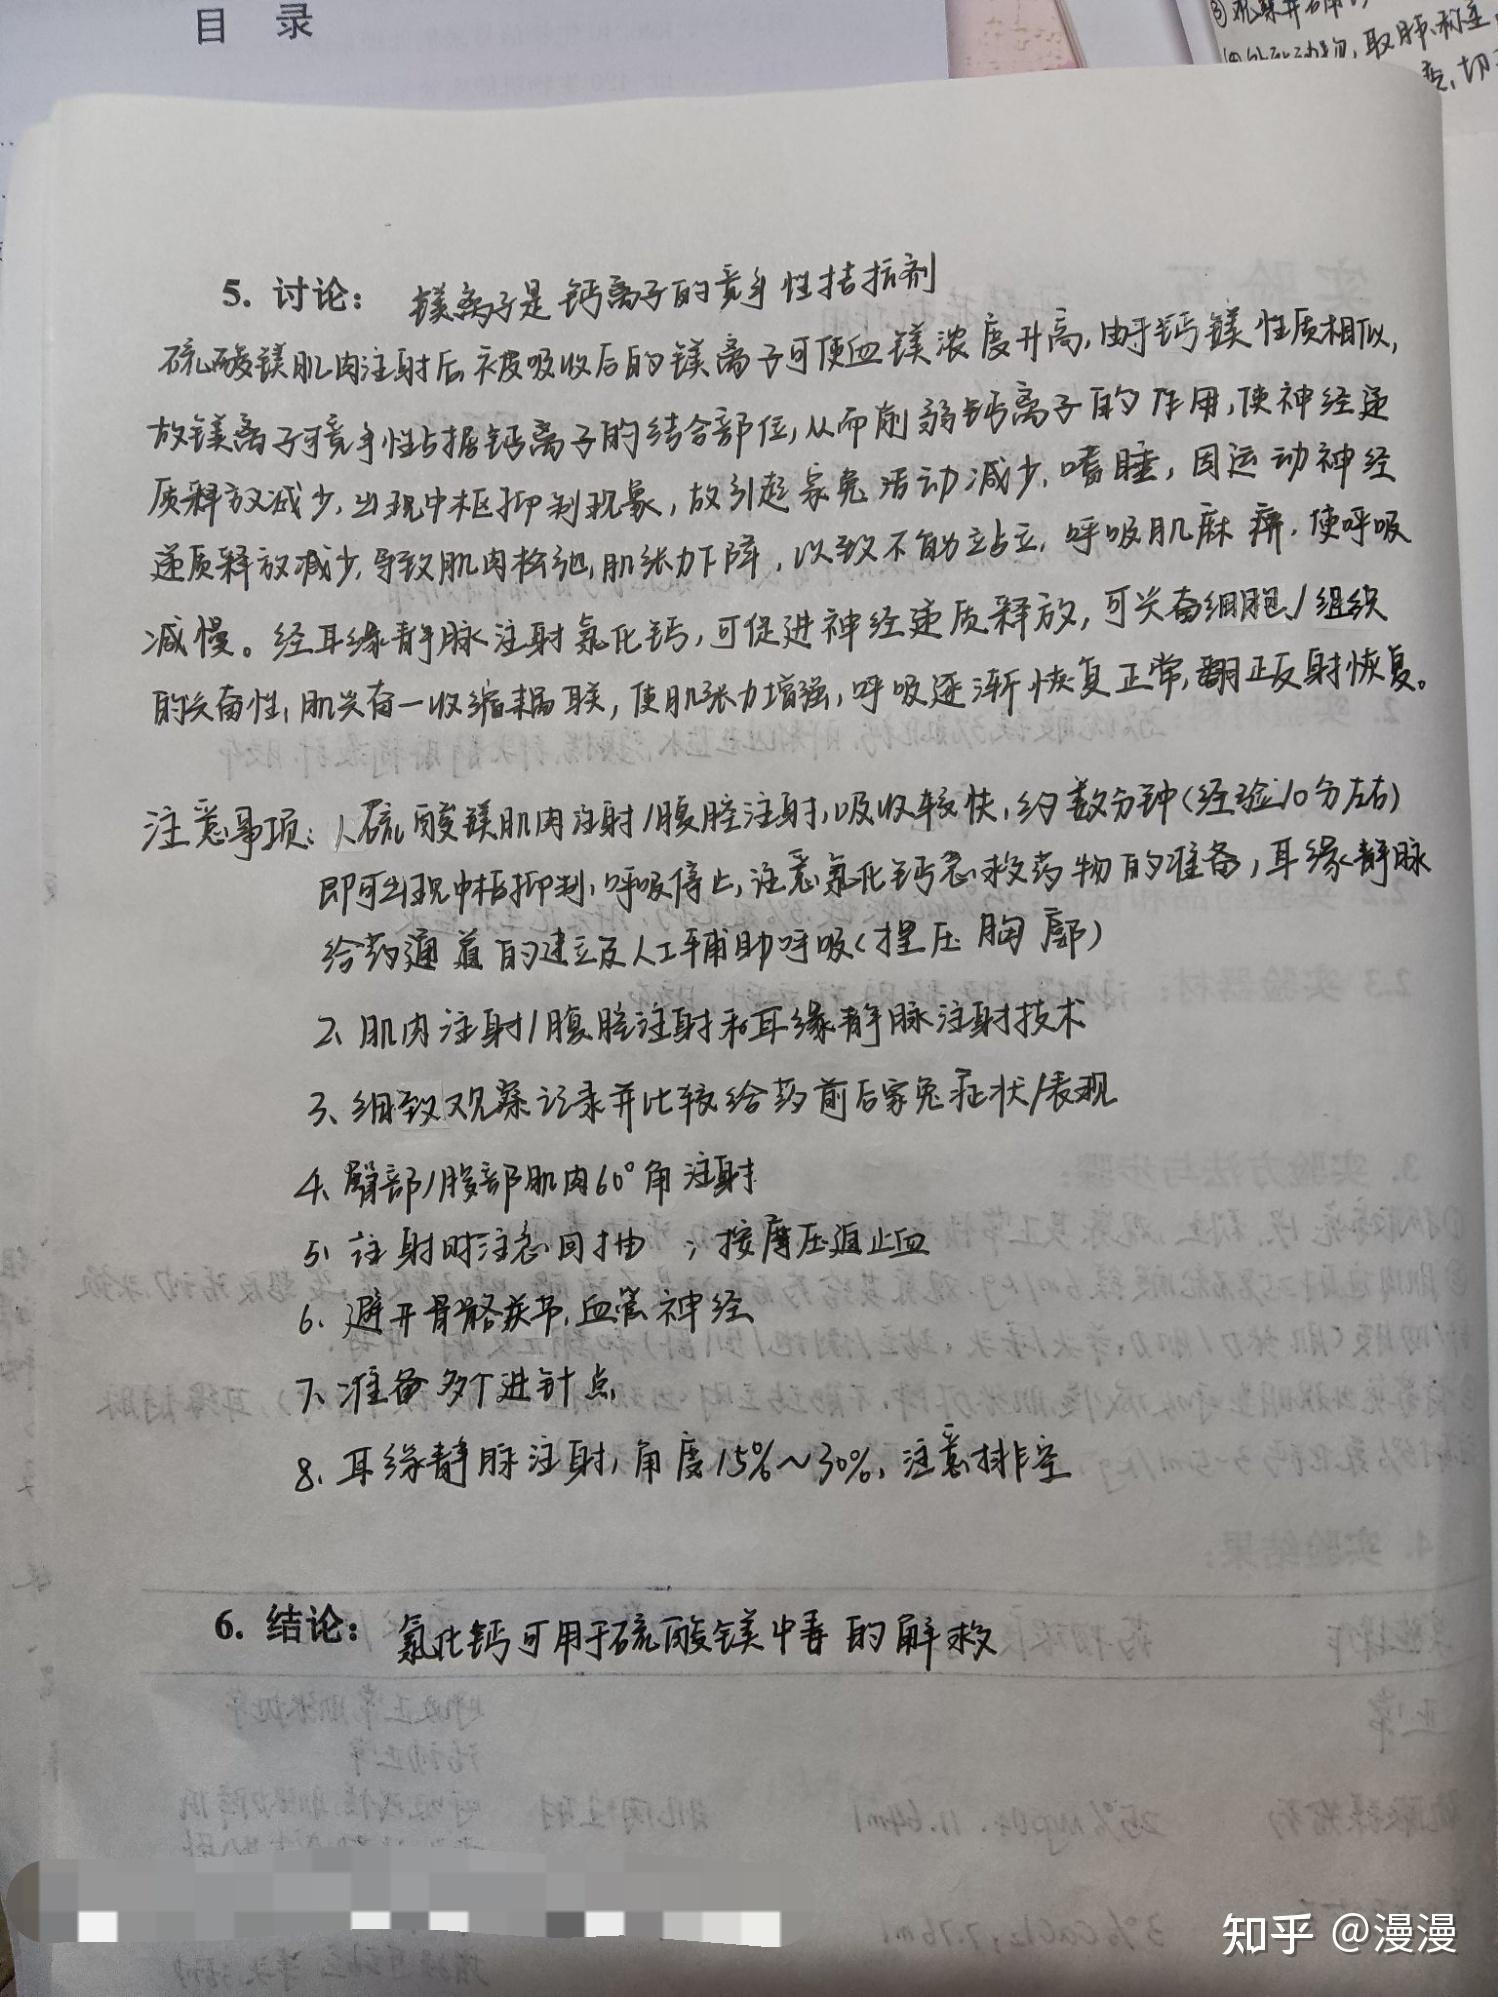 目 录
5. 讨论： 镁离子是钙离子的竞争性拮抗剂
硫酸镁肌肉注射后被吸收后的镁离子可使血镁浓度升高,由于钙镁性质相似,
故镁离子可竞争性占据钙离子的结合部位,从而削弱钙离子的作用,使神经递
质释放减少,出现中枢抑制现象,故引起家兔活动减少,嗜睡,因运动神经
递质释放减少,导致肌肉松弛,肌张力下降,以致不能站立,呼吸肌麻痹,使呼吸
减慢。经耳缘静脉注射氯化钙,可促进神经递质释放,可兴奋细胞/组织
的兴奋性,肌兴奋一收缩耦联,使肌张力增强,呼吸逐渐恢复正常,翻正反射恢复。
注意事项：1、硫酸镁肌肉注射/腹腔注射,吸收较快,约数分钟(经验10分左右)
即可出现中枢抑制,呼吸停止,注意氯化钙急救药物的准备,耳缘静脉
给药通道的建立及人工辅助呼吸(捏压胸廓)
2、肌肉注射/腹腔注射和耳缘静脉注射技术
3、细致观察记录并比较给药前后家兔症状/表现
4、臀部/腹部肌肉60°角注射
5、注射时注意回抽 ；按摩压迫止血
6、避开骨骼关节,血管神经
7、准备多个进针点
8、耳缘静脉注射,角度15%~30%,注意排空
6. 结论： 氯化钙可用于硫酸镁中毒的解救
知乎 @漫漫